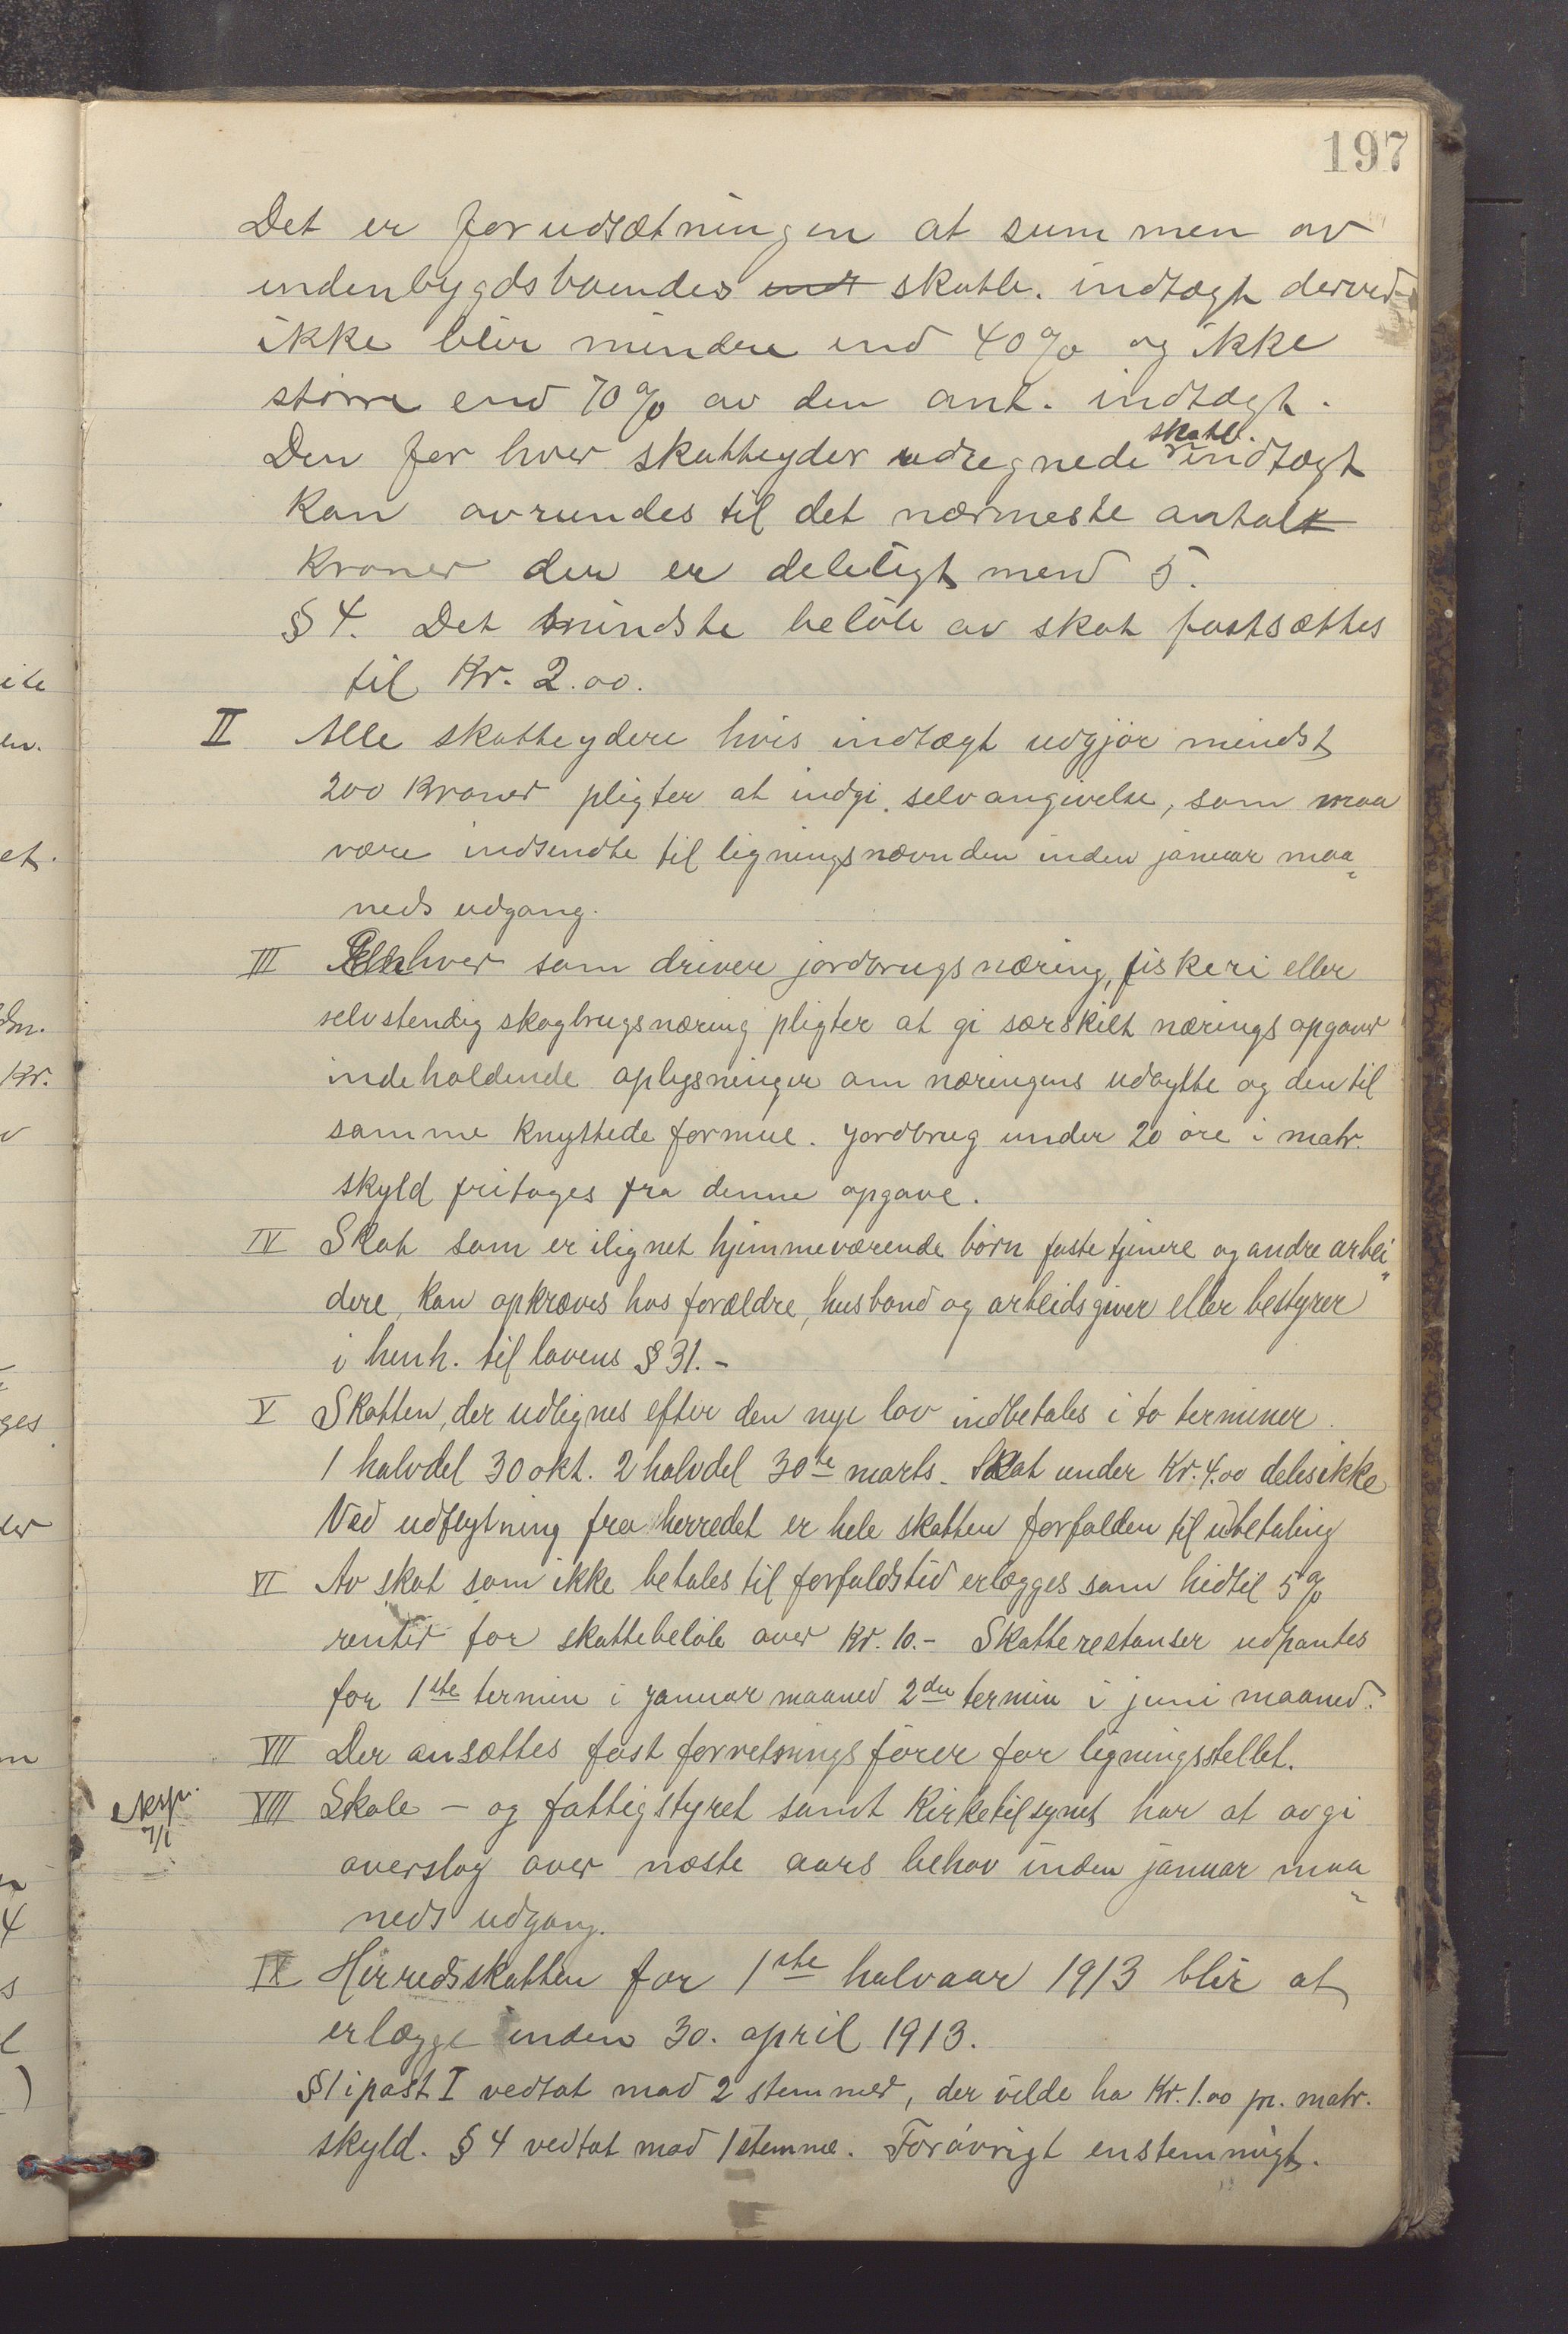 197
Det er forudsætningen at summen av
indenbygdsboendes indt skatb. indtægt derved
ikke blir mindre end 40% og ikke
større end 70% av den ant. indtægt.
Den for hver skatteyder udregnede skatb. indtægt
kan avrundes til det nærmeste antal
kroner der er deleligt med 5.
§ 4. Det mindste beløb av skat fastsættes
til Kr. 2.00.
II Alle skatteydere hvis indtægt udgjør mindst
200 kroner pligter at indgi selvangivelse, som maa
være indsendte til ligningsnævnden inden januar maa-
neds udgang.
III Enhver som driver jordbrugsnæring, fiskeri eller
selvstendig skogbrugsnæring pligter at gi særskilt næringsopgave
indeholdende oplysninger om næringens udbytte og den til
samme knyttede formue. Jordbrug under 20 øre i matr.
skyld fritages fra denne opgave.
IV Skat som er ilignet hjemmeværende børn faste tjenere og andre arbei-
dere, kan opkræves hos forældre, husbond og arbeidsgiver eller bestyrer
i henh. til lovens § 31.-
V Skatten, der udlignes efter den nye lov indbetales i to terminer.
1 halvdel 30 okt. 2 halvdel 30te marts. Skat under Kr. 4.00 deles ikke
Ved udflytning fra herredet er hele skatten forfalden til utbetaling
VI Av skat som ikke betales til forfaldstid erlægges som hidtil 5%
renter for skattebeløb over Kr. 10.- Skatterestanser udpantes
for 1ste termin i januar maaned 2den termin i juni maaned.
VII Der ansættes fast forretningsfører for ligningsstellet.
eksp.
7/1
VIII Skole - og fattigstyret samt Kirketilsynet har at avgi
overslag over næste aars behov inden januar maa-
neds udgang.
IX Herredsskatten for 1ste halvaar 1913 blir at
erlægge inden 30. april 1913.
§ 1 i post I vedtat mod 2 stemmer, der vilde ha Kr. 1.00 pr. matr.
skyld. § 4 vedtat mod 1 stemme. Forøvrigt enstemmigt.